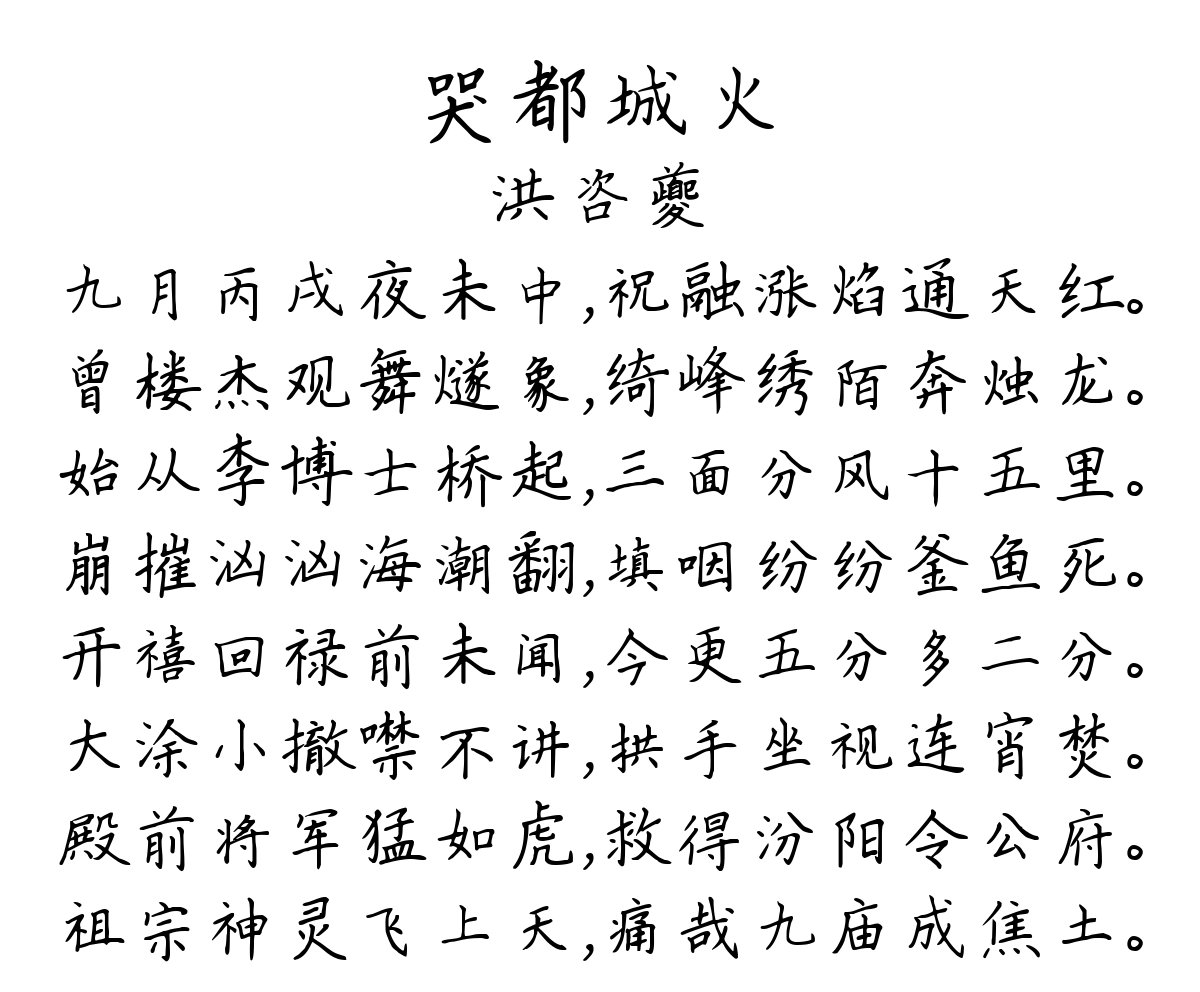 哭都城火
洪咨夔
九月丙戌夜未中,祝融涨焰通天红。
曾楼杰观舞燧象,绮峰绣陌奔烛龙。
始从李博士桥起,三面分风十五里。
崩摧汹汹海潮翻,填咽纷纷釜鱼死。
开禧回禄前未闻,今更五分多二分。
大涂小撤噤不讲,拱手坐视连宵焚。
殿前将军猛如虎,救得汾阳令公府。
祖宗神灵飞上天,痛哉九庙成焦土。